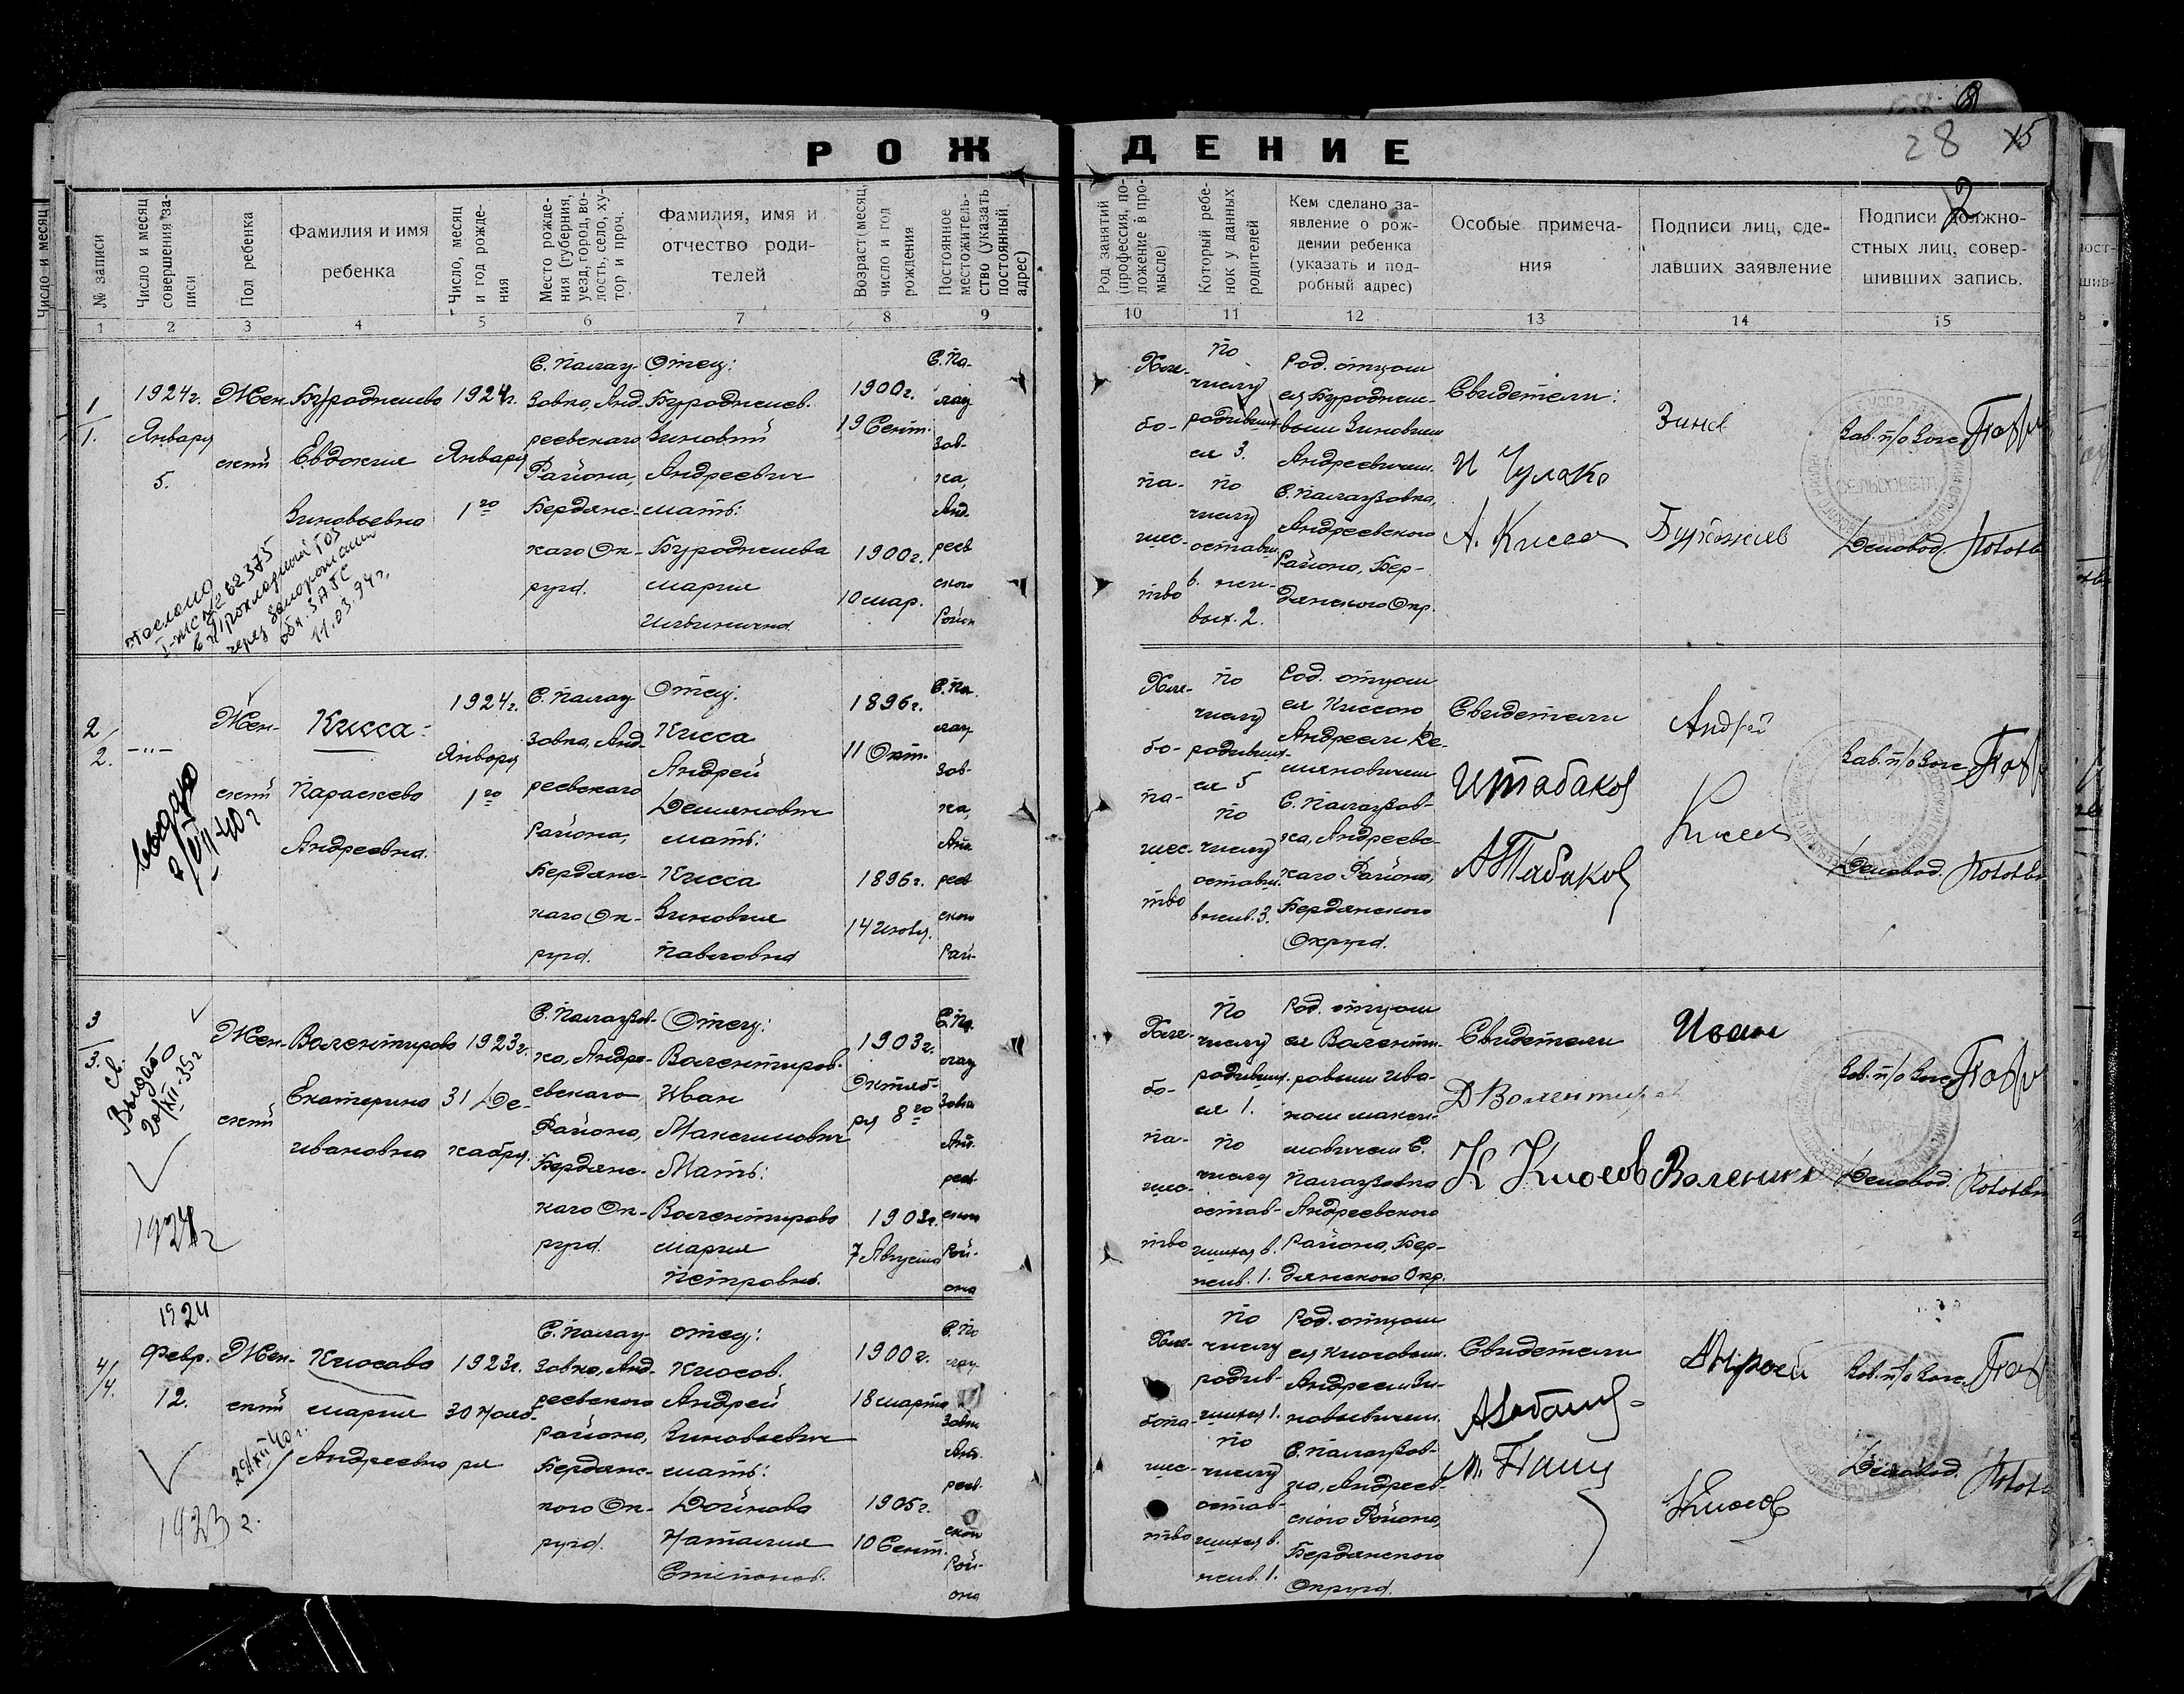 РОЖДЕНИЕ
28 15
2
№ записи
Число и месяц совершения записи
Пол ребенка
Фамилия и имя ребенка
Число, месяц и год рождения
Место рождения (губерния, уезд, город, волость, село, хутор и проч.
Фамилия, имя и отчество родителей
Возраст (месяц, число и год рождения
Постоянное местожительство (указать постоянный адрес)
Род занятий (профессия, положение в промысле)
Который ребенок у данных родителей
Кем сделано заявление о рождении ребенка (указать и подробный адрес)
Особые примечания
Подписи лиц, сделавших заявление
Подписи должностных лиц, совершивших запись.
1 2 3 4 5 6 7 8 9 10 11 12 13 14 15
1
1.
1924г.
Января
5.
Жен-
ский
Бурдниева
Евдокия
Зиновьевна
1924г.
Января
1го
С. Палау-
зовка, Анд-
реевского
Района,
Бердянс-
каго Ок-
руга.
Отец:
Зиновий
Андреевич
мать:
мария
1900г.
19 Сент.
1900г.
10 мар.
С. Па-
лау
зов-
ка,
Анд.
реев
ского
Район
11.03.94г.
Хле-
бо-
па-
шес-
тво
По
числу
родивших
ся 3.
по
числу
оставш.
в жи-
вых. 2.
Род. отцом
Андреевичем.
С. Палаузовка,
Андреевского
Района, Бер-
дянского Окр.
Свидетели:
И Чулак
А. Кисса
Зинов
Зав. п/о Загс
Деловод.
2/
2. —"—
выдано
Жен-
ский
Кисса
Параскева
Андреевна.
1924г.
Января
1го
С. Палау
зовка, Анд-
реевского
Района,
Бердянс-
каго Ок-
руга.
Отец:
Кисса
Андрей
Демянович
мать:
Кисса
Зиновия
Павловна
1896г.
11 Окт.
1896г.
С. Па.
лау
зов-
ка,
Анд
реев
ского
Рай-
Хле-
бо-
па-
шес-
тво
По
числу
родивших-
ся 5
по
числу
оставш.
в жив. 3.
Род. отцом
ся Киссою
Андреем Де-
мяновичем
С. Палаузов-
ка, Андреевс-
каго Района,
Бердянского
Округа.
Свидетели
И Табаков
А Табаков
Андрей
Кисса
Зав. п/о Загс
Деловод.
3
3.
св.
Выдано
20/XII-35г
1924г
Жен-
ский
Валентирова
Екатерина
ивановна
1923г.
31 Де-
кабря.
С. Палаузов-
ка, Андре-
евскаго
Района,
Бердянс-
каго Ок-
руга.
Отец:
Валентиров.
Иван
Максимович
Мать:
Валентирова
мария
Петровна.
1903г.
Октяб-
ря 8го
1903г.
7 Августа
С. Па.
лау
зовка
Анд.
реев
ского
Рай-
она
Хле-
бо-
па-
шес-
тво
По
числу
родивших.
ся 1.
по
числу
остав-
шихся в.
жив. 1.
Род. отцом
ся Валенти-
ровым Ива-
ном макси-
мовичем С.
Палаузовка
Андреевского
Района, Бер-
дянского Окр.
Свидетели
Д Валентиров
К Киосов
Иван
Валенти
Зав. п/о Загс
Деловод.
4/
4.
1924
Февр.
12.
1923 г.
Жен-
ский
29/XII 40г.
Киосова
мария
Андреевна
1923г.
30 Нояб-
ря
С. Палау
зовка, Анд.
реевского
Района,
Бердянс-
кого Ок-
руга.
отец:
Киосов.
Андрей
Зиновьевич
мать:
Дойнова
Наталия
Степанов.
1900г.
18 марта
1905г.
10 Сент.
С. Па
лау
зовка
Анд.
реев.
ского
Рай-
она
Хле-
бопа-
шес-
тво
По
числу
родив-
шихся 1.
по
числу
остав-
шихся в.
жив. 1.
Род. отцом
ся Киосовым.
Андреем Зи-
новьевичем.
С. Палаузов-
ка, Андреев-
ского Района,
Бердянского
Округа.
Свидетели
Андрей
Киосов
Зав. п/о Загс.
Деловод.